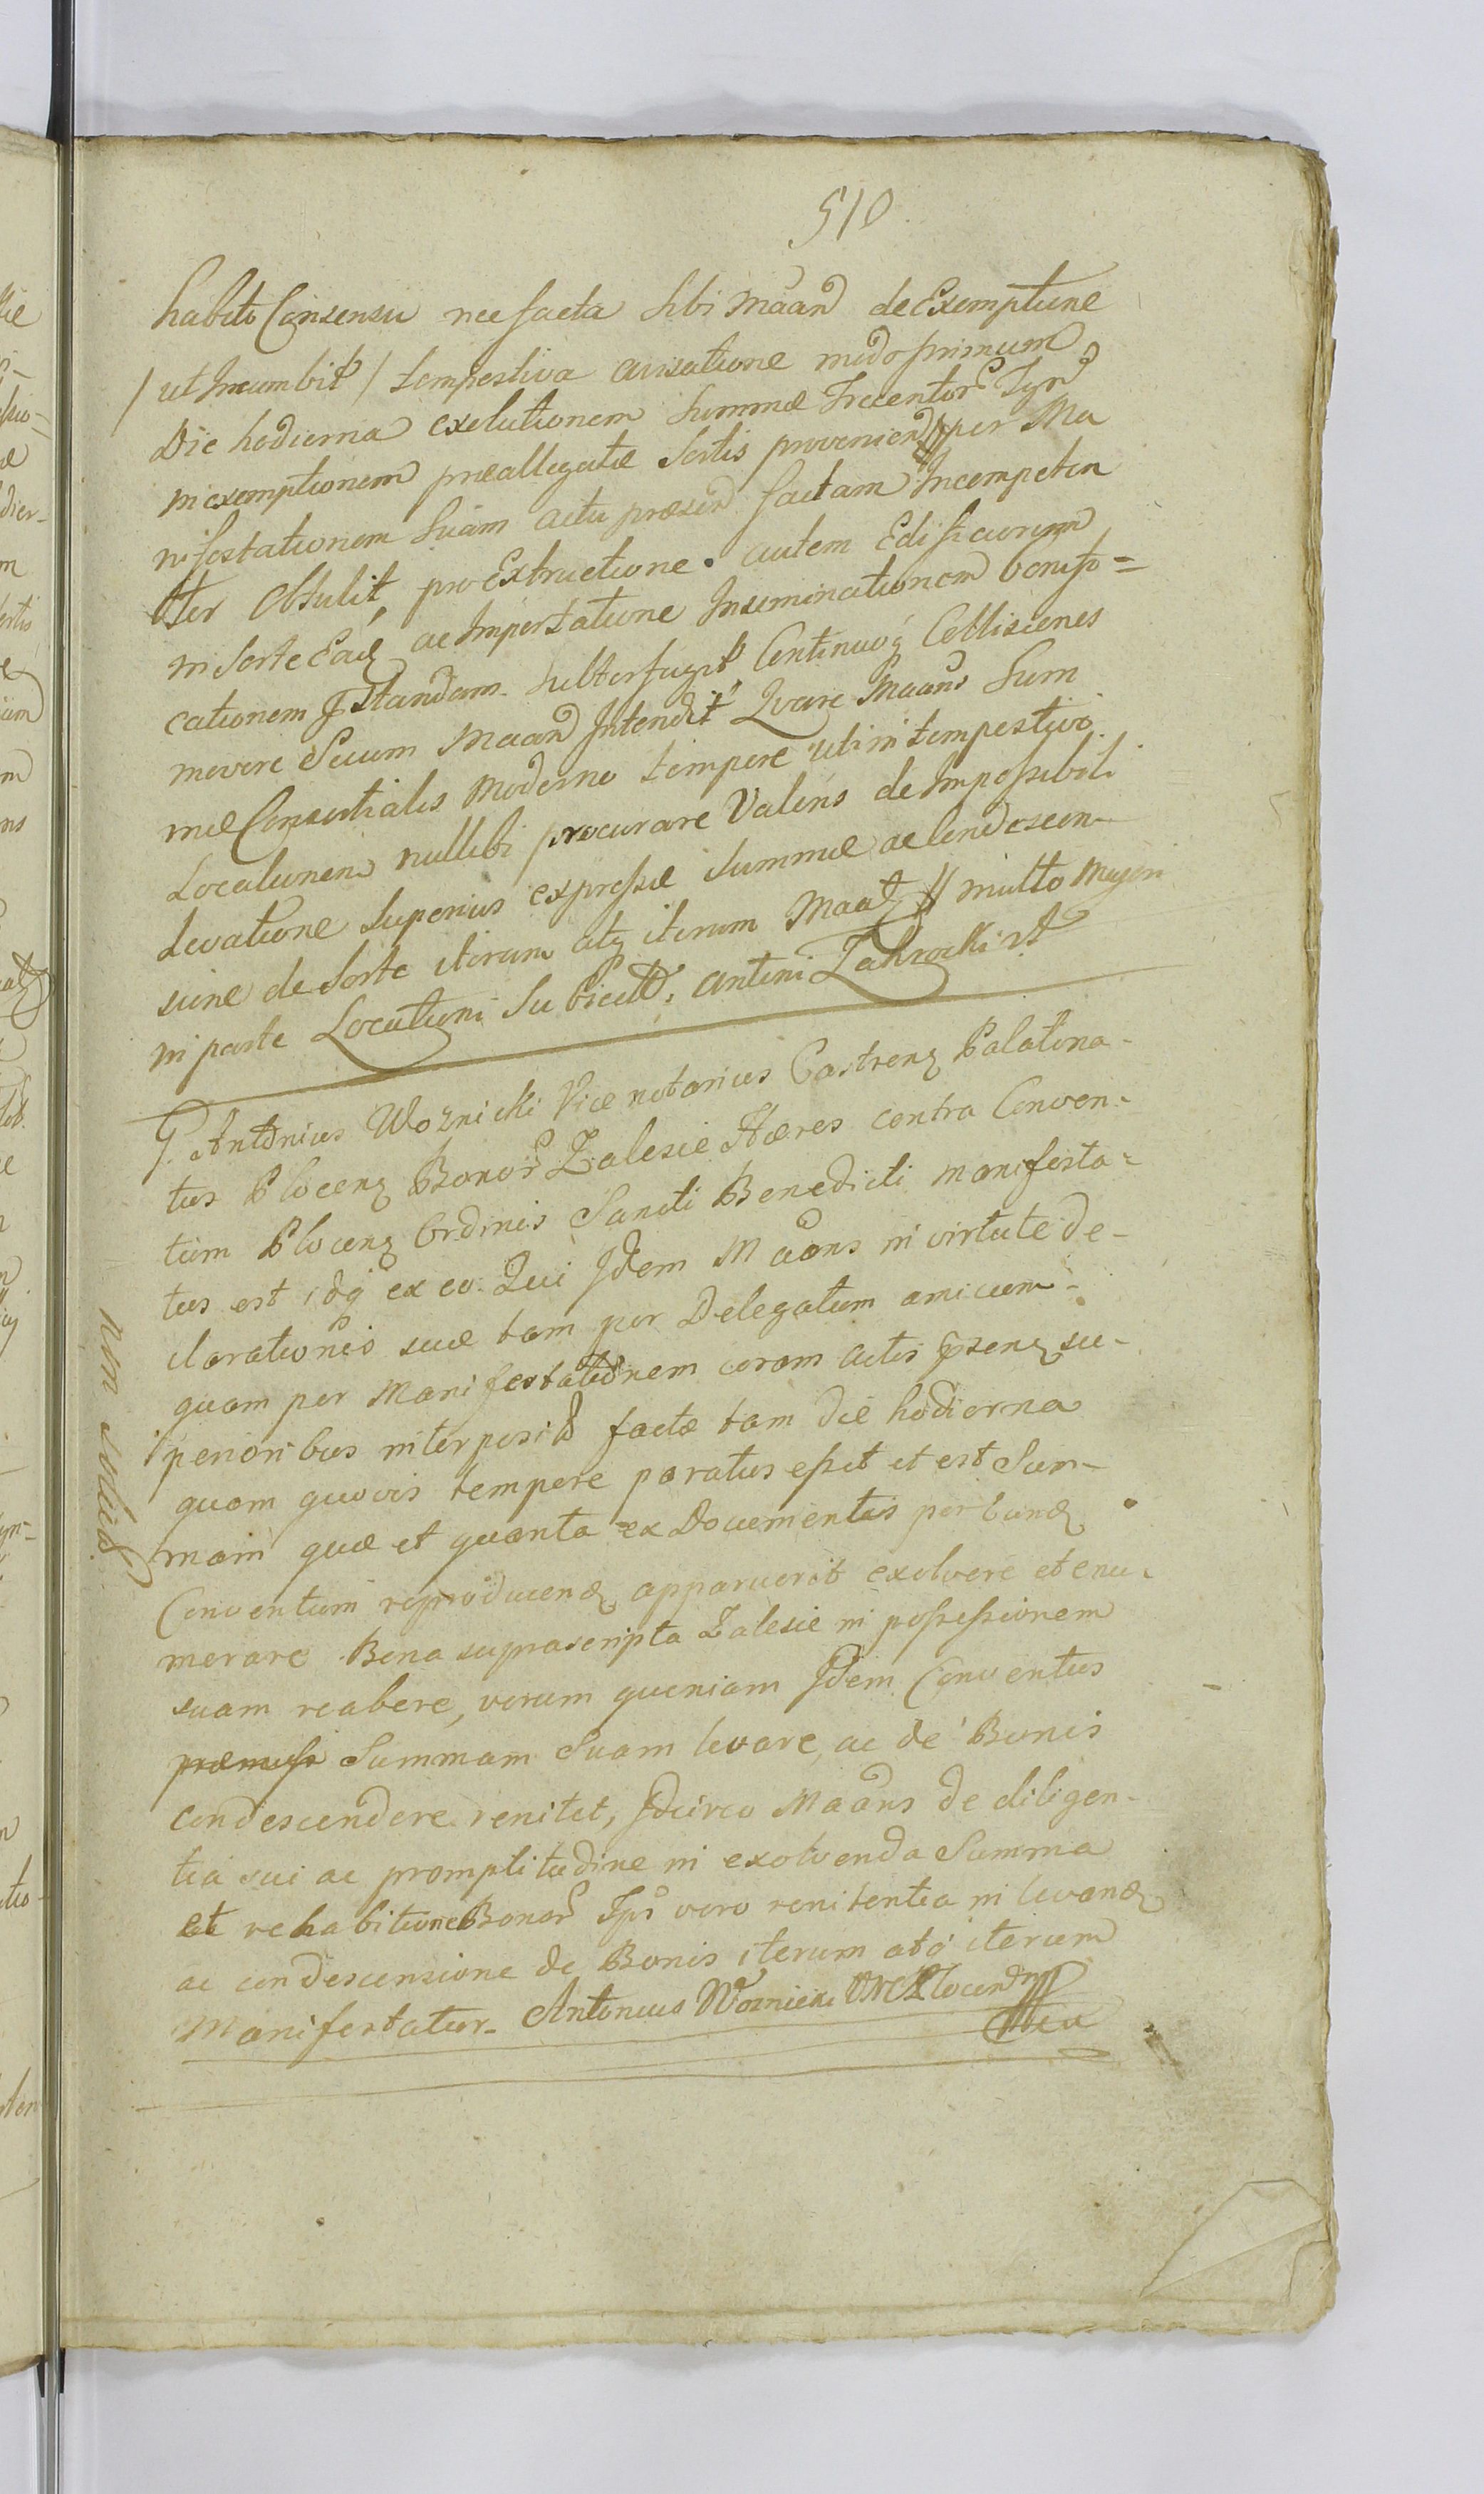 510
habito Consensu nec facta sibi Maan de Exemptione
/ ut Incumbit / tempestiva avisatione modo primum
Die hodierna exolutionem Summæ Trecentor Tyn
in exemptionem præallegatæ Sortis provenien per Ma
nifestationem Suam actu præsen factam Incompeten
ter Obtulit, pro Extructione autem Edificiorum
in Sorte Ead ac Importatione Inseminationem bonifi=
cationem pstandam subterfugit, Continuoq Collisiones
movere Secum Maan Intendit, Qvare Maans Sum
mæ Consortialis Moderno tempore uti intempestivo
Locationem nullibi procurare Valens de Impossibili
Levatione Superius expressæ Summæ ac Condescen-
sione de Sorte iterum atq iterum Maat // Multo Majori
in parte Locationi Subicit. Antoni Zakrocki
G. Antonius Woznicki Vice notarius Castren Palatina-
tus Plocen Bonor Zalesie Hæres contra Conven-
tum Plocen Ordinis Sancti Benedicti manifesta=
tus est idq ex eo. Qui Idem Maans in virtute de-
clarationis suæ tam per Delegatum amicum
quam per Manifestationem coram actis psen su-
perioribus interposit factæ tam die hodierna
quam quovis tempore paratus esset et est Sum-
mam quæ et quanta ex Documentis per eund
Conventum reproducend apparuerit exolvere et enu-
merare Bona suprascripta Zalesie in possessionem
suam reabere, verum quoniam Idem Conventus
præmiss Summam Suam levare, ac de Bonis
condescendere renitet, Idcirco Maans de diligen-
tia sui ac promptitudine in exolvenda Summa
et rehabitione Bonor Ipsi vero renitentia in levand
ac condescensione de Bonis iterum atq iterum
Manifestatur. Antonius Woznicki VN Plocen
non solvit